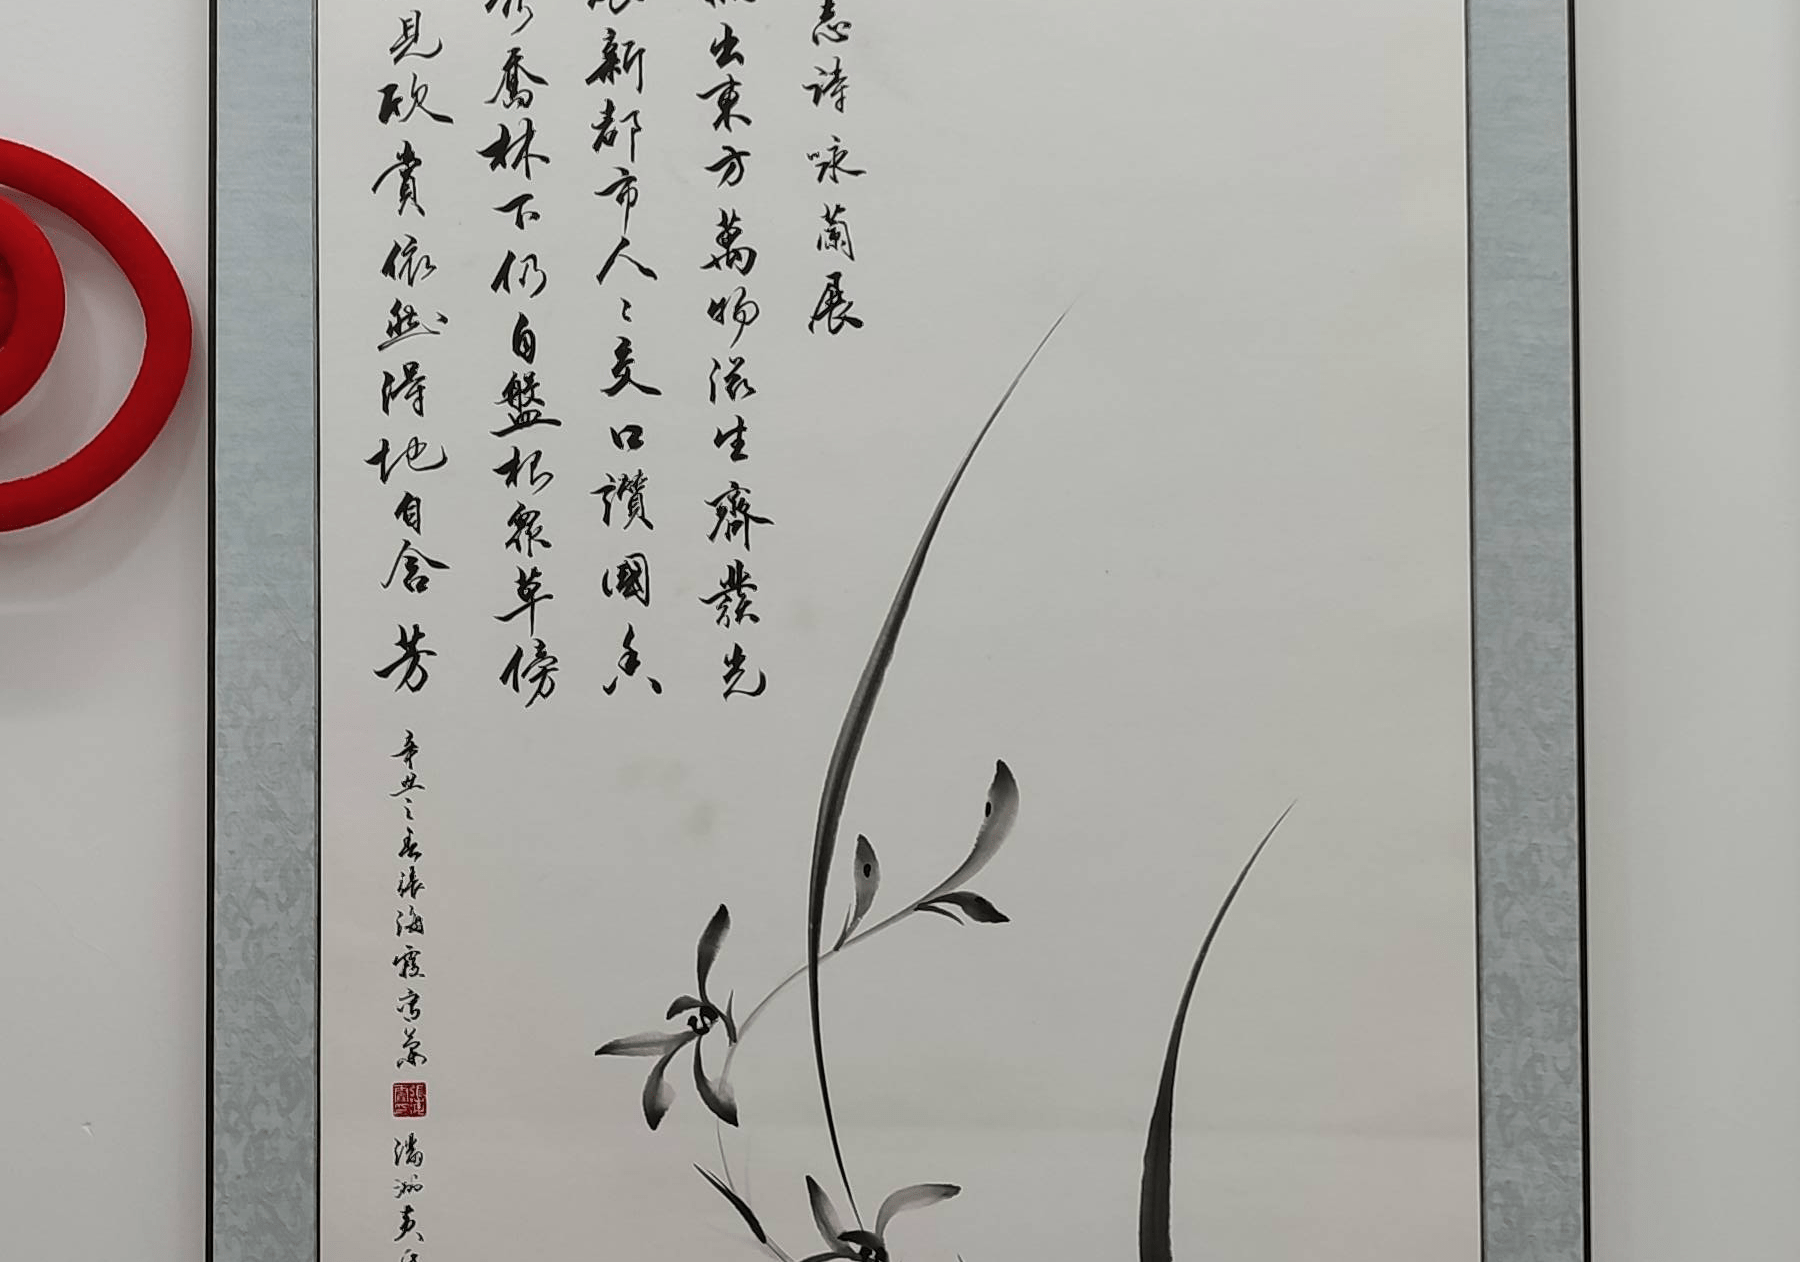 志詩咏蘭展
出東方萬物滋生齊發光
新都市人々交口讚國香
喬林下仍自盤根衆草傍
見欣賞依然得地自含芳
辛丑之春張海霞寫蘭